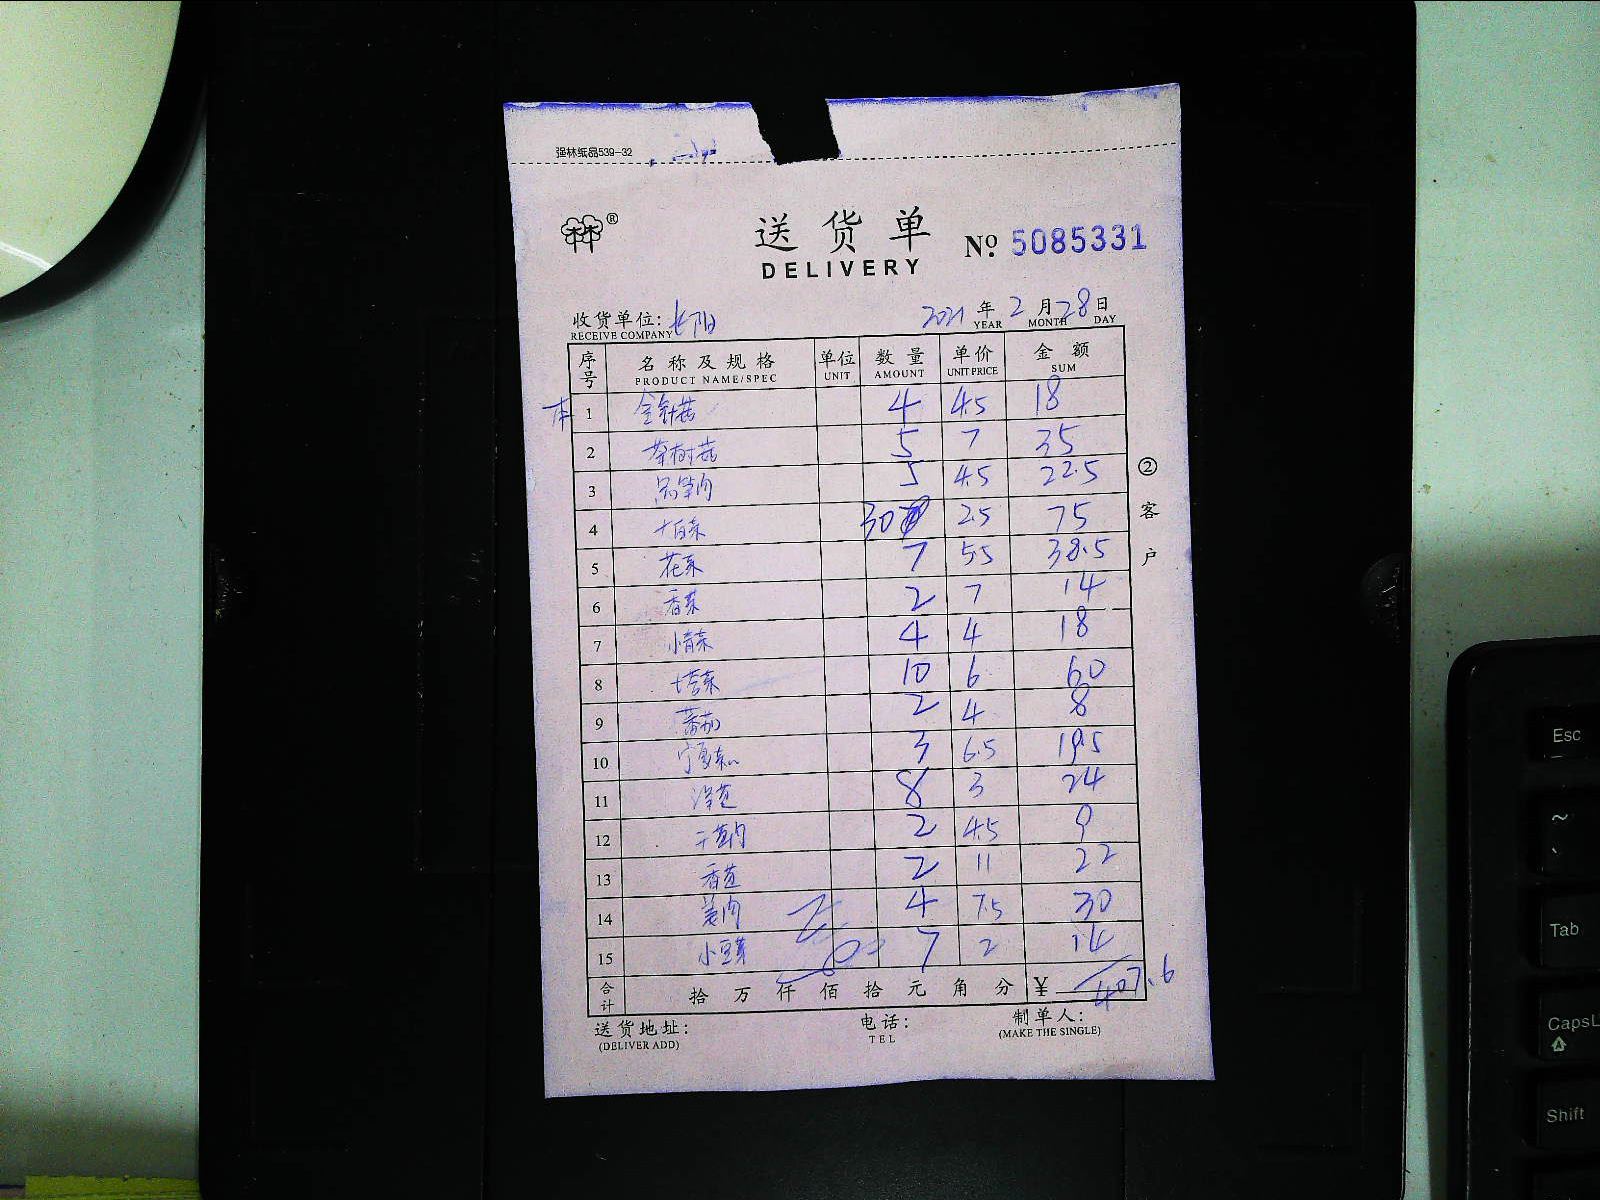 强林纸品539-32
®
送货单
DELIVERY
No. 5085331
收货单位: 长阳 2021年2月28日
RECEIVE COMPANY YEAR MONTH DAY
序号 名称及规格 单位 数量 单价 金额
PRODUCT NAME/SPEC UNIT AMOUNT UNIT PRICE SUM
本 1 金针菇 4 4.5 18
2 茶树菇 5 7 35
3 5 4.5 22.5
4 大白菜 30 2.5 75
5 花菜 7 5.5 38.5
6 香菜 2 7 14
7 小青菜 4 4 18
8 塔菜 10 6 60
9 蕃茄 2 4 8
10 3 6.5 19.5
11 洋葱 8 3 24
12 2 4.5 9
13 香葱 2 11 22
14 姜肉 4 7.5 30
15 小豆芽 7 2 14
合计 拾万仟佰拾元角分 ¥ 407.6
② 客户
送货地址: 电话: 制单人:
(DELIVER ADD) TEL (MAKE THE SINGLE)
Esc
~
Tab
CapsL
Shift